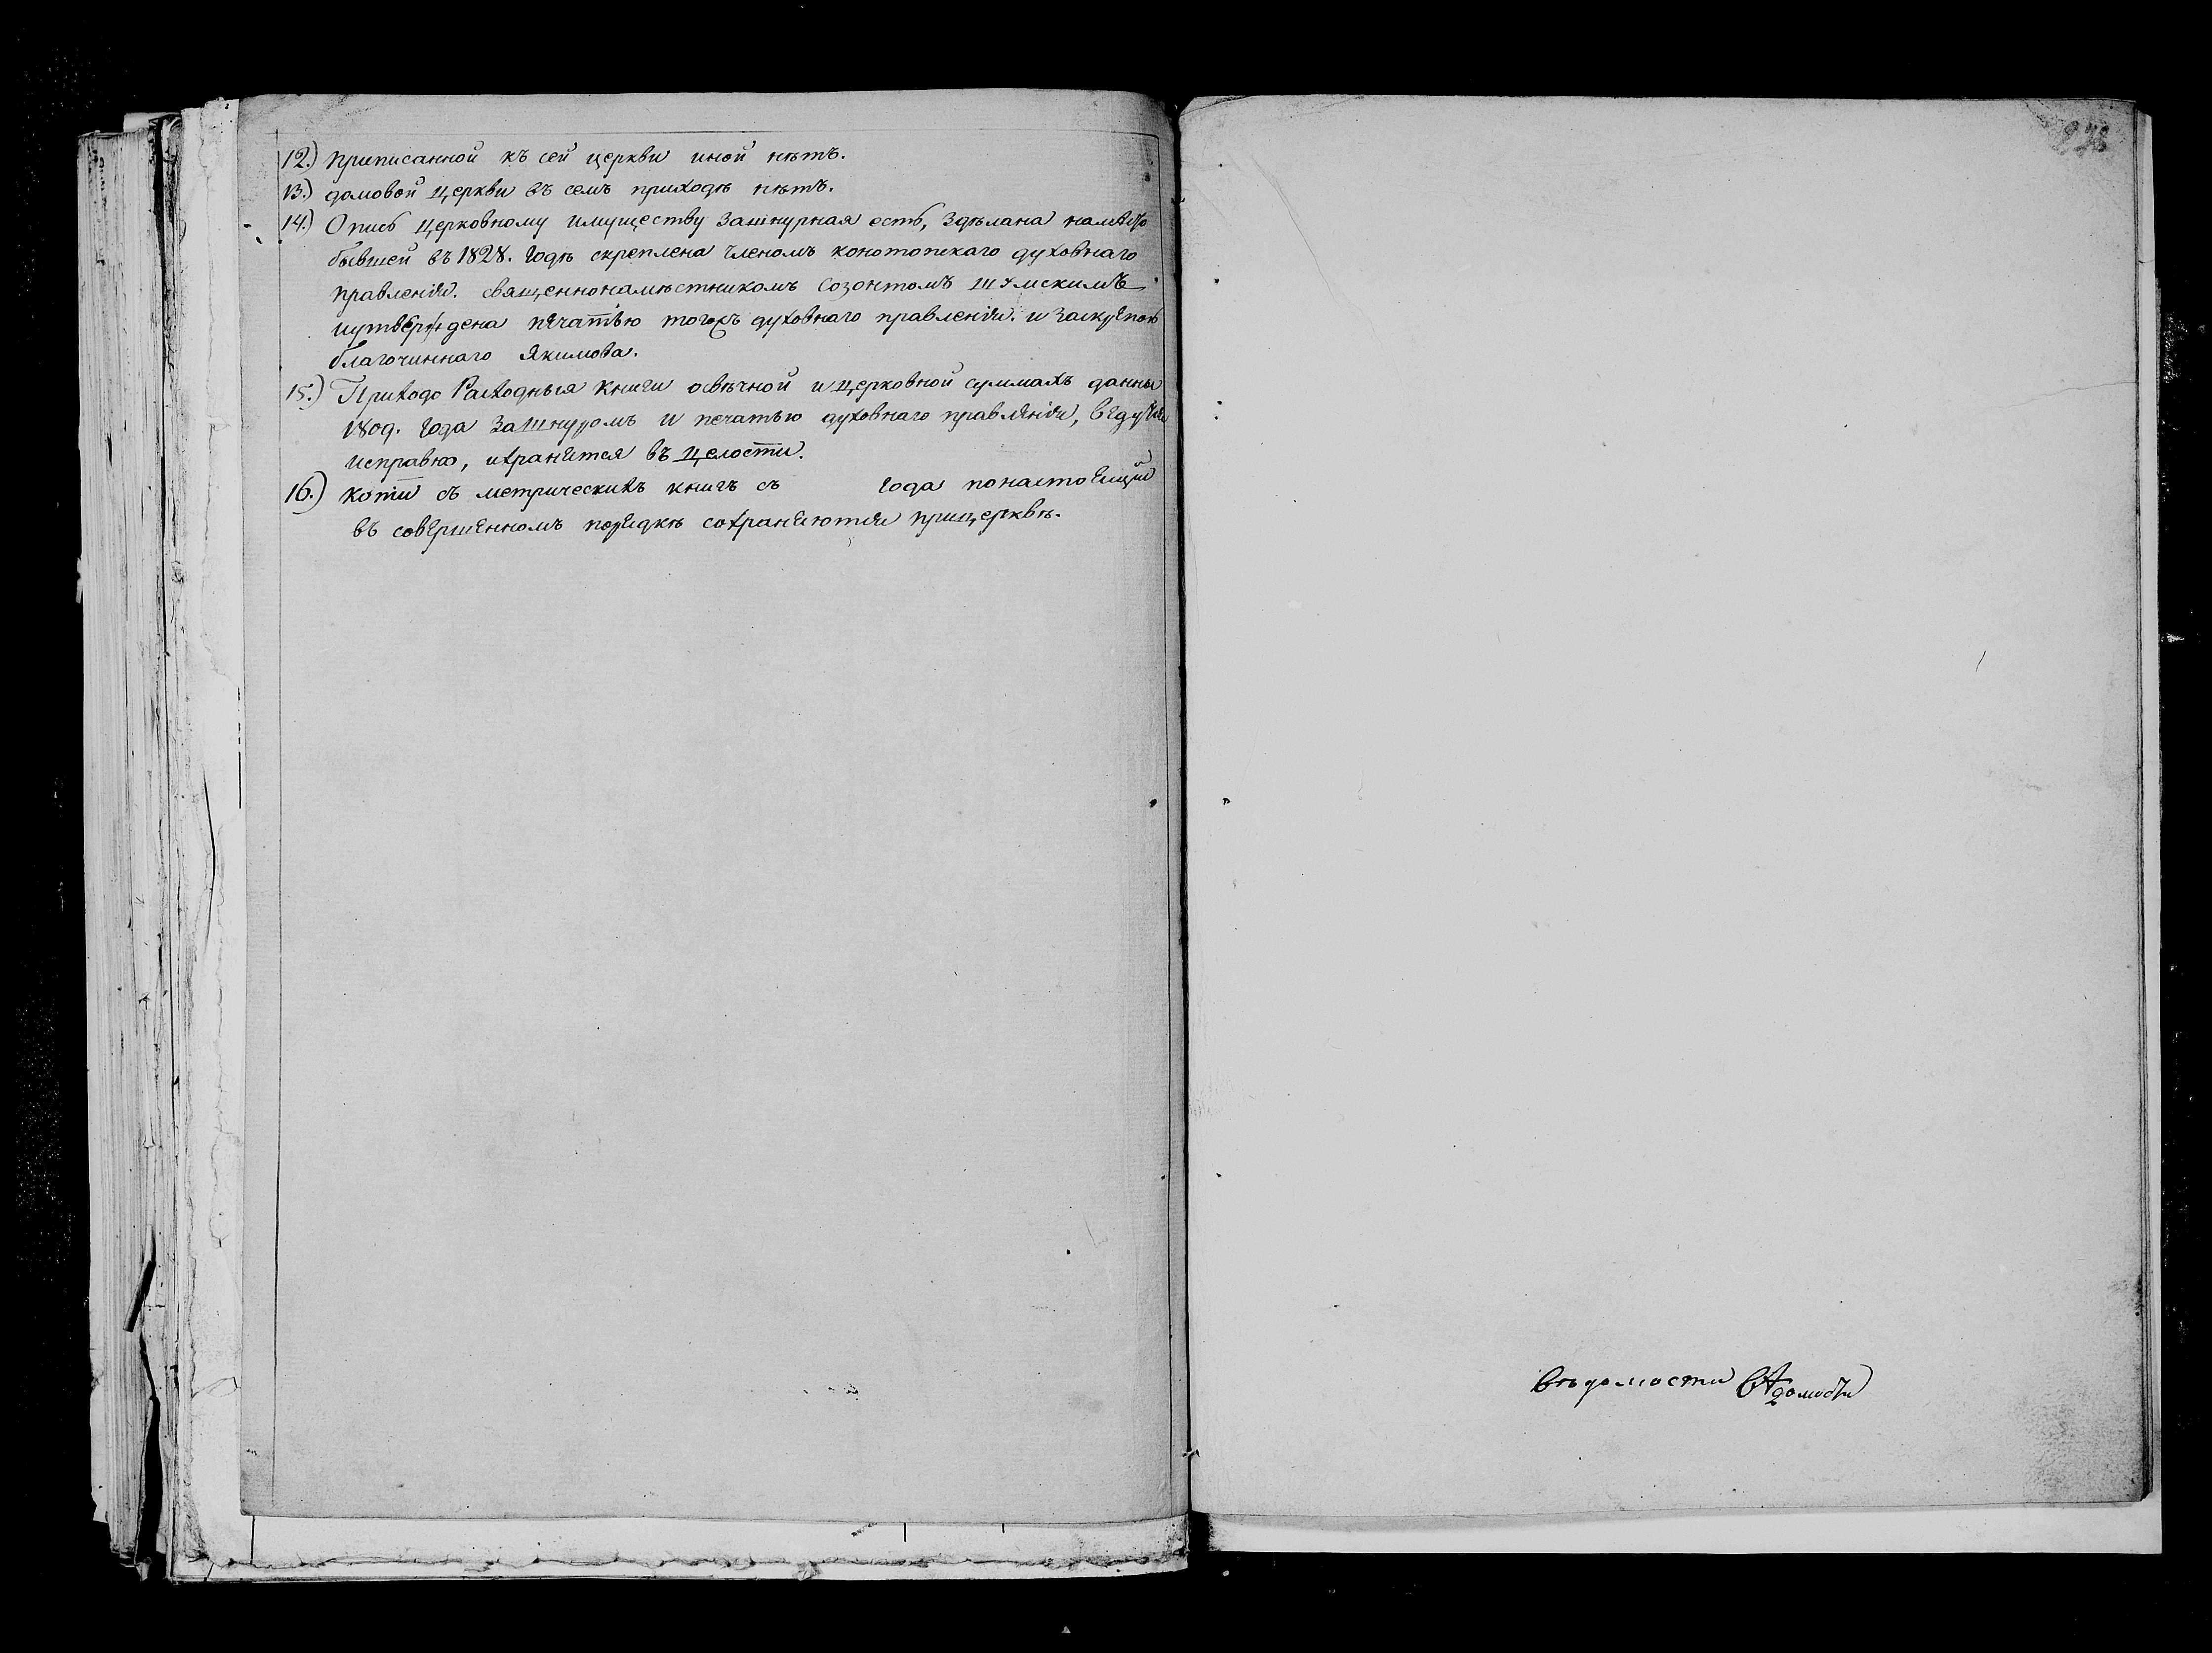 12.) приписанной къ сей церкви иной нѣтъ.
13.) домовой церкви въ семъ приходѣ нѣтъ.
14.) Опись церковному имуществу зашнурная есть, здѣлана
бывшей въ 1828. годѣ скреплена членомъ конотопскаго духовнаго
правленія. священнонамѣстникомъ Созонтомъ Шумскимъ
иутверждена печатью тогожъ духовнаго правленія. и заскрепою
благочиннаго Якимова.
15.) Приходо Расходныя книги освѣчной и церковной суммахъ данны
1809. года зашнуромъ и печатью духовнаго правленія,
исправно, ихранится въ целости.
16.) копіи съ метрическихъ книгъ съ года понастоящій
въ совершенномъ порядкѣ сохраняются прицерквѣ.
вѣдомости вѣдомости